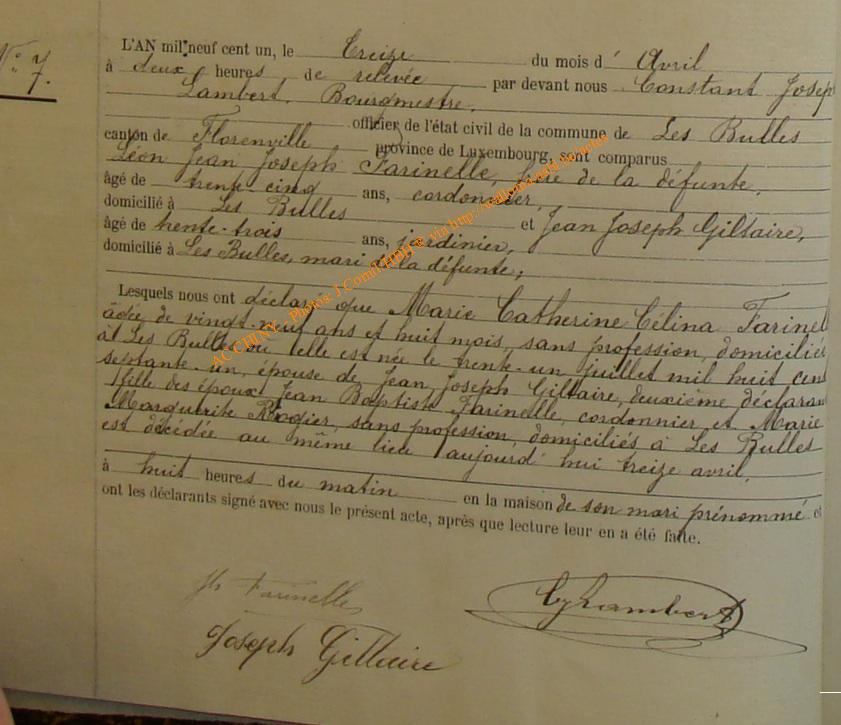 N° 7.
L'AN mil neuf cent un, le treize du mois d' Avril
à deux heures de relevée par devant nous Constant Josep
Lambert, Bourgmestre,
officier de l'état civil de la commune de Les Bulles
canton de Florenville province de Luxembourg, sont comparus
Léon Jean Joseph Farinelle, frère de la défunte,
âgé de trente cinq ans, cordonnier,
domicilié à Les Bulles et Jean Joseph Giltaire,
âgé de trente-trois ans, jardinier,
domicilié à Les Bulles, mari de la défunte;
Lesquels nous ont déclaré que Marie Catherine Célina Farinell
âgée de vingt-neuf ans et huit mois, sans profession, domiciliée
à Les Bulles où elle est née le trente-un juillet mil huit cent
septante-un, épouse de Jean Joseph Giltaire, deuxième déclarant
fille des époux Jean Baptiste Farinelle, cordonnier et Marie
Marguerite Rogier, sans profession, domiciliés à Les Bulles
est décédée au même lieu aujourd'hui treize avril,
à huit heures du matin en la maison de son mari prénommé et
ont les déclarants signé avec nous le présent acte, après que lecture leur en a été faite.
Farinelle
Lambert
Joseph Giltaire
ACCHINY - Photos: J. via